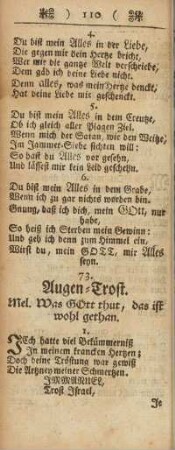 ) 110 (
4.
Du bist mein Alles in der Liebe,
Die gegen mir dein Hertze bricht,
Wer mir die gantze Welt verschriebe,
Dem gäb ich deine Liebe nicht.
Denn alles, was mein Hertze denckt,
Hat deine Liebe mir geschenckt.
5.
Du bist mein Alles in dem Creutze,
Ob ich gleich aller Plagen Ziel.
Wenn mich der Satan, wie den Weitze,
Im Jammer-Siebe sichten will:
So hast du Alles vor gesehn,
Und lässest mir kein Leid geschehn.
6.
Du bist mein Alles in dem Grabe,
Wenn ich zu gar nichts worden bin.
Gnung, daß ich dich, mein GOtt, nur
habe,
So heiß ich Sterben mein Gewinn:
Und geh ich denn zum Himmel ein,
Wirst du, mein GOTT, mir Alles
seyn.
73.
Augen-Trost.
Mel. Was GOtt thut, das ist
wohl gethan.
1.
ICh hatte viel Bekümmerniß
In meinem krancken Hertzen;
Doch deine Tröstung war gewiß
Die Artzney meiner Schmertzen.
IMMANUEL,
Trost Israel,
Je